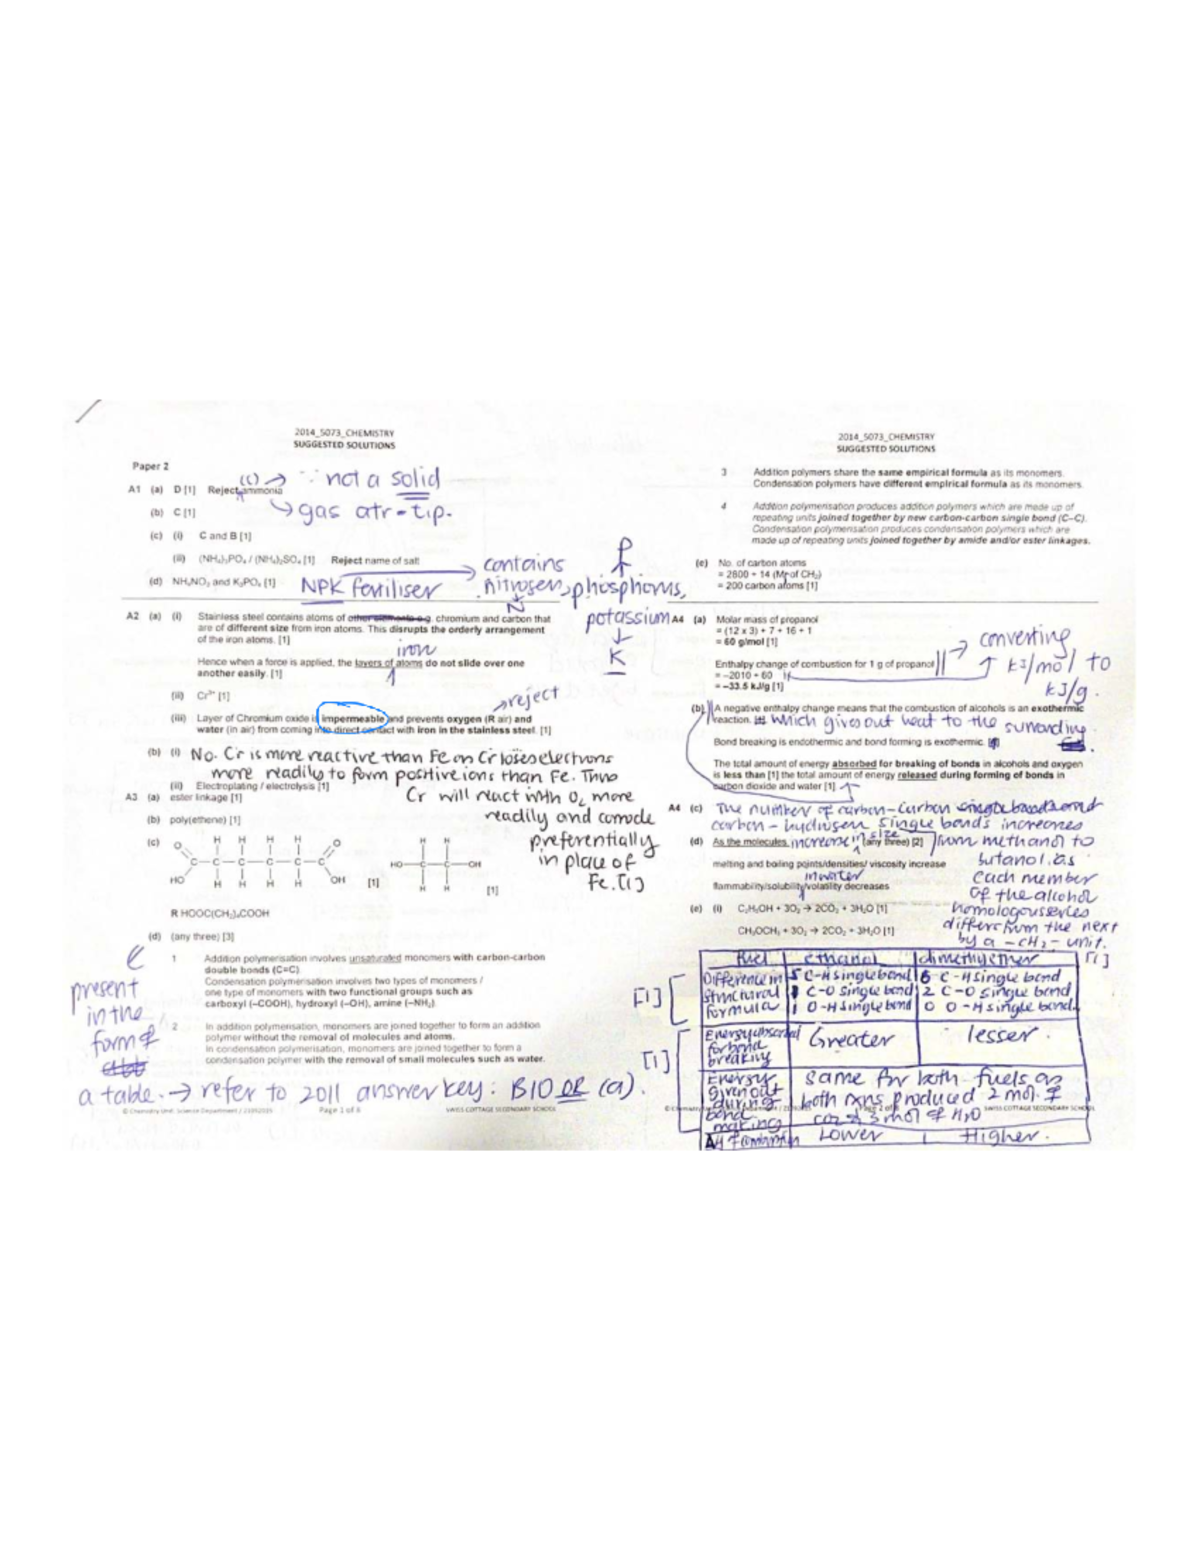 2014_5073_CHEMISTRY
SUGGESTED SOLUTIONS
Paper 2
A1 (a) D [1] Reject ammonia
(l) → ∵ not a solid
↳ gas at r-tip.
(b) C [1]
(c) (i) C and B [1]
(ii) (NH₄)₃PO₄ / (NH₄)₂SO₄ [1] Reject name of salt
(d) NH₄NO₃ and K₃PO₄ [1] NPK fertiliser → contains
nitrogen, phosphorus,
N
P
potassium
K
A2 (a) (i) Stainless steel contains atoms of other elements e.g. chromium and carbon that
are of different size from iron atoms. This disrupts the orderly arrangement
of the iron atoms. [1]
iron
Hence when a force is applied, the layers of atoms do not slide over one
another easily. [1]
(ii) Cr³⁺ [1]
→ reject
(iii) Layer of Chromium oxide is impermeable and prevents oxygen (R air) and
water (in air) from coming into direct contact with iron in the stainless steel. [1]
(b) (i) No. Cr is more reactive than Fe as Cr loses electrons
more readily to form positive ions than Fe. Thus
Cr will react with O₂ more
readily and corrode
preferentially
in place of
Fe. [1]
(ii) Electroplating / electrolysis [1]
A3 (a) ester linkage [1]
(b) poly(ethene) [1]
(c) H H H H
O
C C C C C C
HO H H H H OH [1]
H H
HO C C OH
H H [1]
R HOOC(CH₂)₄COOH
(d) (any three) [3]
present
in the
form of
a table. → refer to 2011 answer key: B10 OR (a).
1 Addition polymerisation involves unsaturated monomers with carbon-carbon
double bonds (C=C).
Condensation polymerisation involves two types of monomers /
one type of monomers with two functional groups such as
carboxyl (–COOH), hydroxyl (–OH), amine (–NH₂).
2 In addition polymerisation, monomers are joined together to form an addition
polymer without the removal of molecules and atoms.
In condensation polymerisation, monomers are joined together to form a
condensation polymer with the removal of small molecules such as water.
Page 1 of 6 SWISS COTTAGE SECONDARY SCHOOL
2014_5073_CHEMISTRY
SUGGESTED SOLUTIONS
3 Addition polymers share the same empirical formula as its monomers.
Condensation polymers have different empirical formula as its monomers.
4 Addition polymerisation produces addition polymers which are made up of
repeating units joined together by new carbon-carbon single bond (C–C).
Condensation polymerisation produces condensation polymers which are
made up of repeating units joined together by amide and/or ester linkages.
(e) No. of carbon atoms
= 2800 ÷ 14 (Mr of CH₂)
= 200 carbon atoms [1]
A4 (a) Molar mass of propanol
= (12 x 3) + 7 + 16 + 1
= 60 g/mol [1]
Enthalpy change of combustion for 1 g of propanol
= –2010 ÷ 60
= –33.5 kJ/g [1]
→ converting
kJ/mol to
kJ/g.
(b) A negative enthalpy change means that the combustion of alcohols is an exothermic
reaction. which gives out heat to the surrounding
Bond breaking is endothermic and bond forming is exothermic.
The total amount of energy absorbed for breaking of bonds in alcohols and oxygen
is less than [1] the total amount of energy released during forming of bonds in
carbon dioxide and water [1]
A4 (c) The number of carbon-carbon single bonds and
carbon-hydrogen single bonds increases
from methanol to
butanol. as
each member
of the alcohol
homologous series
differs from the next
by a –CH₂– unit.
[1]
(d) As the molecules increase in size (any three) [2]
melting and boiling points/densities/ viscosity increase
in water
flammability/solubility/volatility decreases
(e) (i) C₂H₅OH + 3O₂ → 2CO₂ + 3H₂O [1]
CH₃OCH₃ + 3O₂ → 2CO₂ + 3H₂O [1]
Fuel ethanol dimethyl ether
[1] Difference in structural formula
5 C-H single bond 6 C-H single bond
1 C-O single bond 2 C-O single bond
1 O-H single bond 0 O-H single bond
[1] Energy absorbed for bond breaking Greater lesser
Energy given out during bond making
same for both fuels as
both rxns produced 2 mol of
CO₂ & 3 mol of H₂O
ΔH combustion Lower Higher.
SWISS COTTAGE SECONDARY SCHOOL